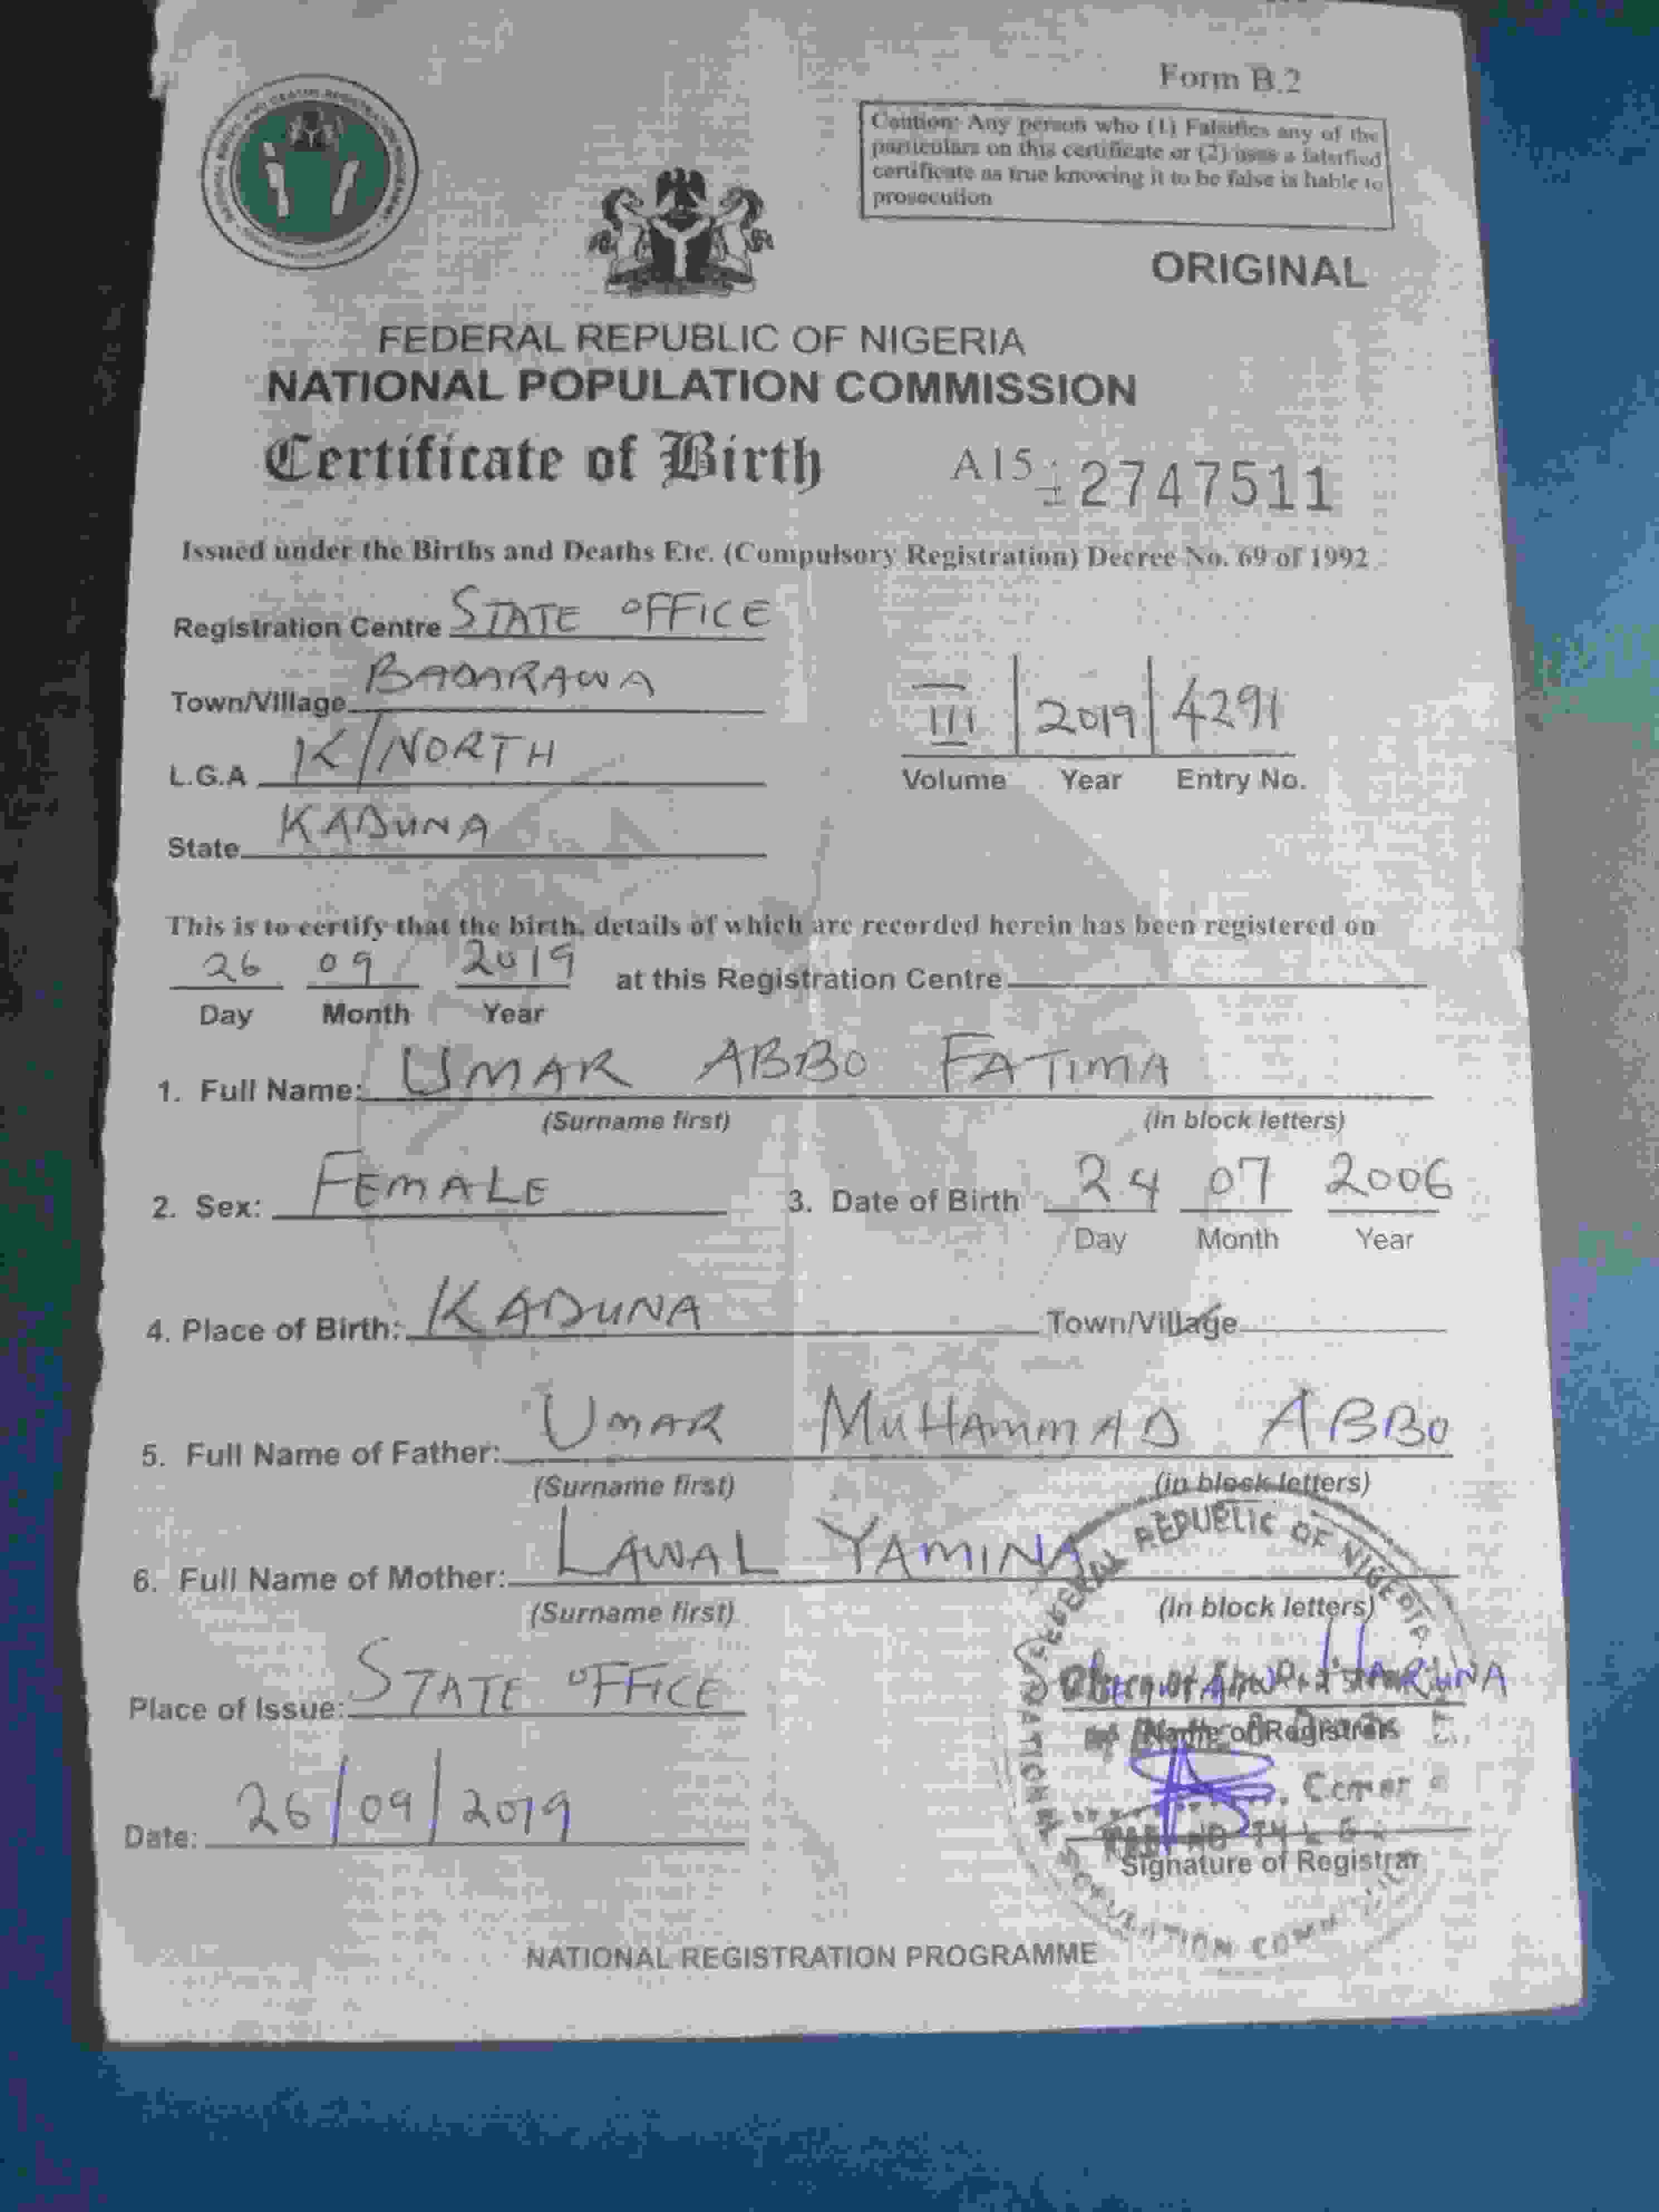 Form B.2
Caution: Any person who (1) Falsifies any of the
particulars on this certificate or (2) uses a falsified
certificate as true knowing it to be false is liable to
prosecution
ORIGINAL
FEDERAL REPUBLIC OF NIGERIA
NATIONAL POPULATION COMMISSION
Certificate of Birth A15 2747511
Issued under the Births and Deaths Etc. (Compulsory Registration) Decree No. 69 of 1992
Registration Centre STATE OFFICE
Town/Village BADARAWA
L.G.A K/NORTH
State KADUNA
III 2019 4291
Volume Year Entry No.
This is to certify that the birth, details of which are recorded herein has been registered on
26 09 2019 at this Registration Centre
Day Month Year
1. Full Name: UMAR ABBO FATIMA
(Surname first) (in block letters)
2. Sex: FEMALE 3. Date of Birth 24 07 2006
Day Month Year
4. Place of Birth: KADUNA Town/Village
5. Full Name of Father: UMAR MUHAMMAD ABBO
(Surname first) (in block letters)
6. Full Name of Mother: LAWAL YAMINA
(Surname first) (in block letters)
FEDERAL REPUBLIC OF NIGERIA
Place of Issue: STATE OFFICE
HARUNA
Name of Registrar
Date: 26/09/2019
Signature of Registrar
NATIONAL REGISTRATION PROGRAMME